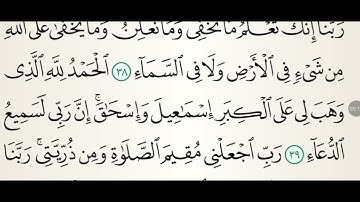 رَبَّنَا إِنَّكَ تَعْلَمُ مَا نُخْفِى وَمَا نُعْلِنُ وَمَا يَخْفَىٰ عَلَى ٱللَّهِ
مِن شَىْءٍ فِى ٱلْأَرْضِ وَلَا فِى ٱلسَّمَآءِ ٣٨ ٱلْحَمْدُ لِلَّهِ ٱلَّذِى
وَهَبَ لِى عَلَى ٱلْكِبَرِ إِسْمَـٰعِيلَ وَإِسْحَـٰقَ ۚ إِنَّ رَبِّى لَسَمِيعُ
ٱلدُّعَآءِ ٣٩ رَبِّ ٱجْعَلْنِى مُقِيمَ ٱلصَّلَوٰةِ وَمِن ذُرِّيَّتِى ۚ رَبَّنَا